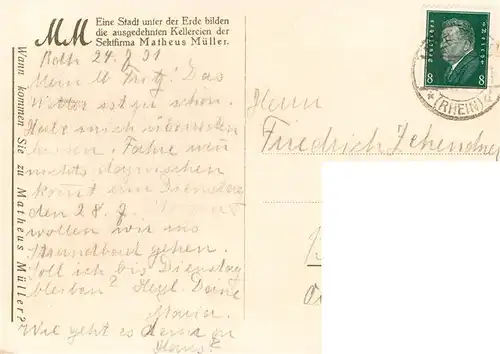 MM
Eine Stadt unter der Erde bilden
die ausgedehnten Kellereien der
Sektfirma Matheus Müller.
Wann kommen Sie zu Matheus Müller?
24. 7. 31
Mein lb Fritz! Das
Wetter ist ja schön.
Habe mich
lassen. Fahre wenn
nichts dazwischen
kommt am Dienstag
den 28. 7.
wollen wir ins
Strandbad gehen.
Soll ich bis Dienstag
bleiben? Herzl. Deine
Maria.
Wie geht es denn
Hans?
Herrn
Friedrich Zehendner
Deutsches Reich
8 8
(RHEIN)